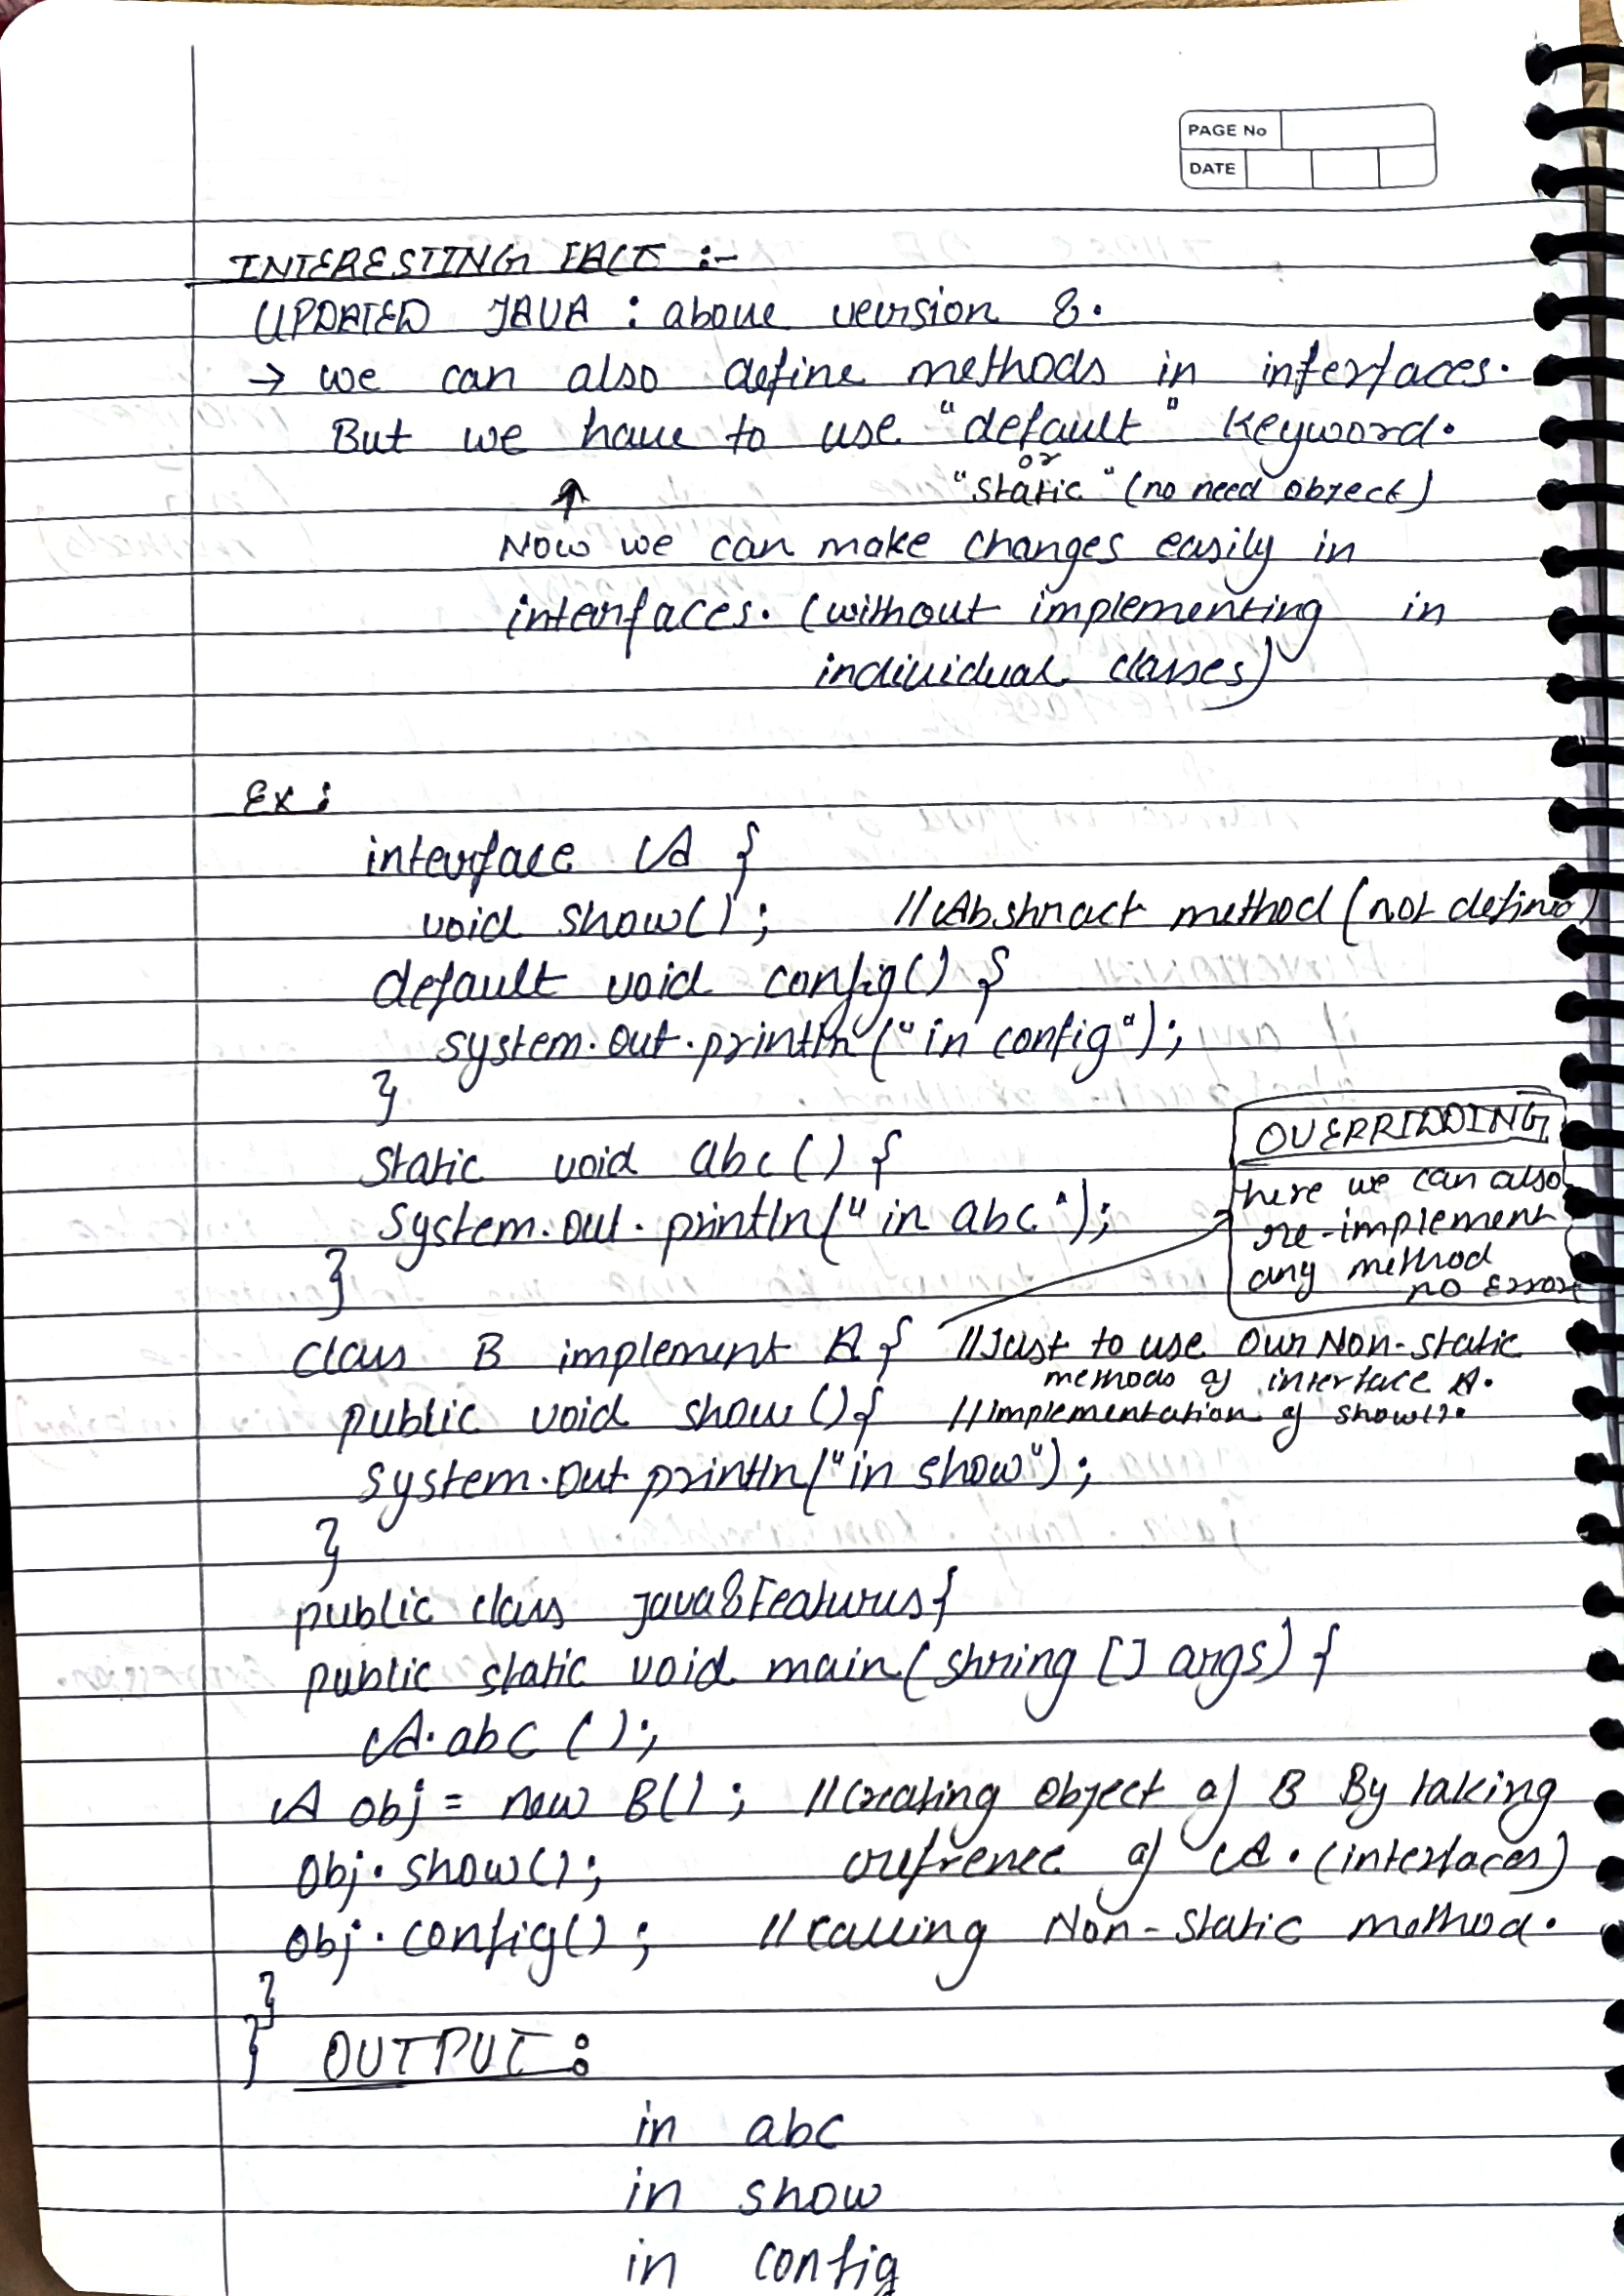 PAGE No
DATE
INTERESTING FACT :-
UPDATED JAVA : above version 8.
→ we can also define methods in interfaces.
But we have to use "default" keyword.
or
"static" (no need object)
↑
Now we can make changes easily in
interfaces. (without implementing in
individual classes)
Ex :
interface A {
void show(); //Abstract method (not define)
default void config() {
system.out.println("in config");
}
static void abc() {
system.out.println("in abc");
}
OVERRIDDING
here we can also
re-implement
any method
no error
class B implement A { //Just to use our Non-static
methods of interface A.
public void show() { //implementation of show().
system.out.println("in show");
}
public class java8Features{
public static void main(string [] args) {
A.abc ();
A obj = new B(); //Creating object of B By taking
obj.show(); refrence of A. (interfaces)
obj.config(); //calling Non-static method.
}
} OUTPUT :
in abc
in show
in config